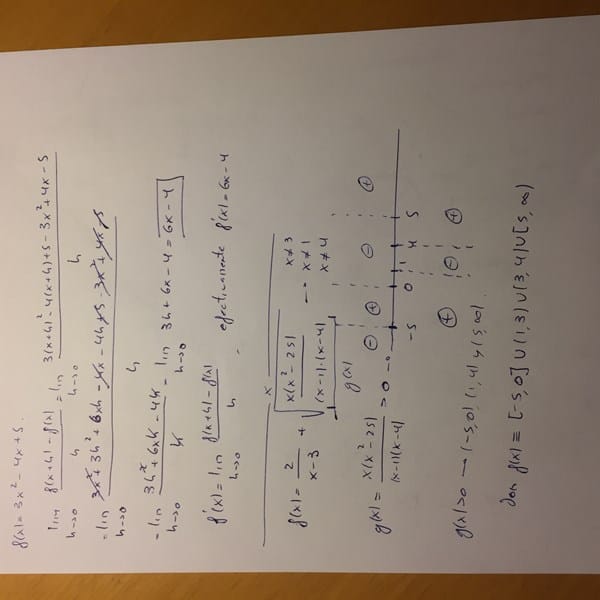 f(x) = 3x² - 4x + 5.
lim h→0 (f(x+h) - f(x))/h = lim h→0 (3(x+h)² - 4(x+h) + 5 - 3x² + 4x - 5)/h
= lim h→0 (3x² + 3h² + 6xh - 4x - 4h + 5 - 3x² + 4x - 5)/h
= lim h→0 (3h² + 6xh - 4h)/h = lim h→0 3h + 6x - 4 = 6x - 4
f'(x) = lim h→0 (f(x+h) - f(x))/h · efectivamente f'(x) = 6x - 4
x
f(x) = 2/(x-3) + √(x(x² - 25)/((x-1)·(x-4))) → x≠3 x≠1 x≠4
g(x)
g(x) = x(x² - 25)/((x-1)(x-4)) > 0 → ⊖ ⊕ ⊖ ⊕
-5 0 1 4 5
g(x) > 0 → (-5,0), (1,4) y (5,∞). ⊕ ⊖ ⊕
Dom f(x) ≡ [-5,0] ∪ (1,3) ∪ (3,4) ∪ [5,∞)